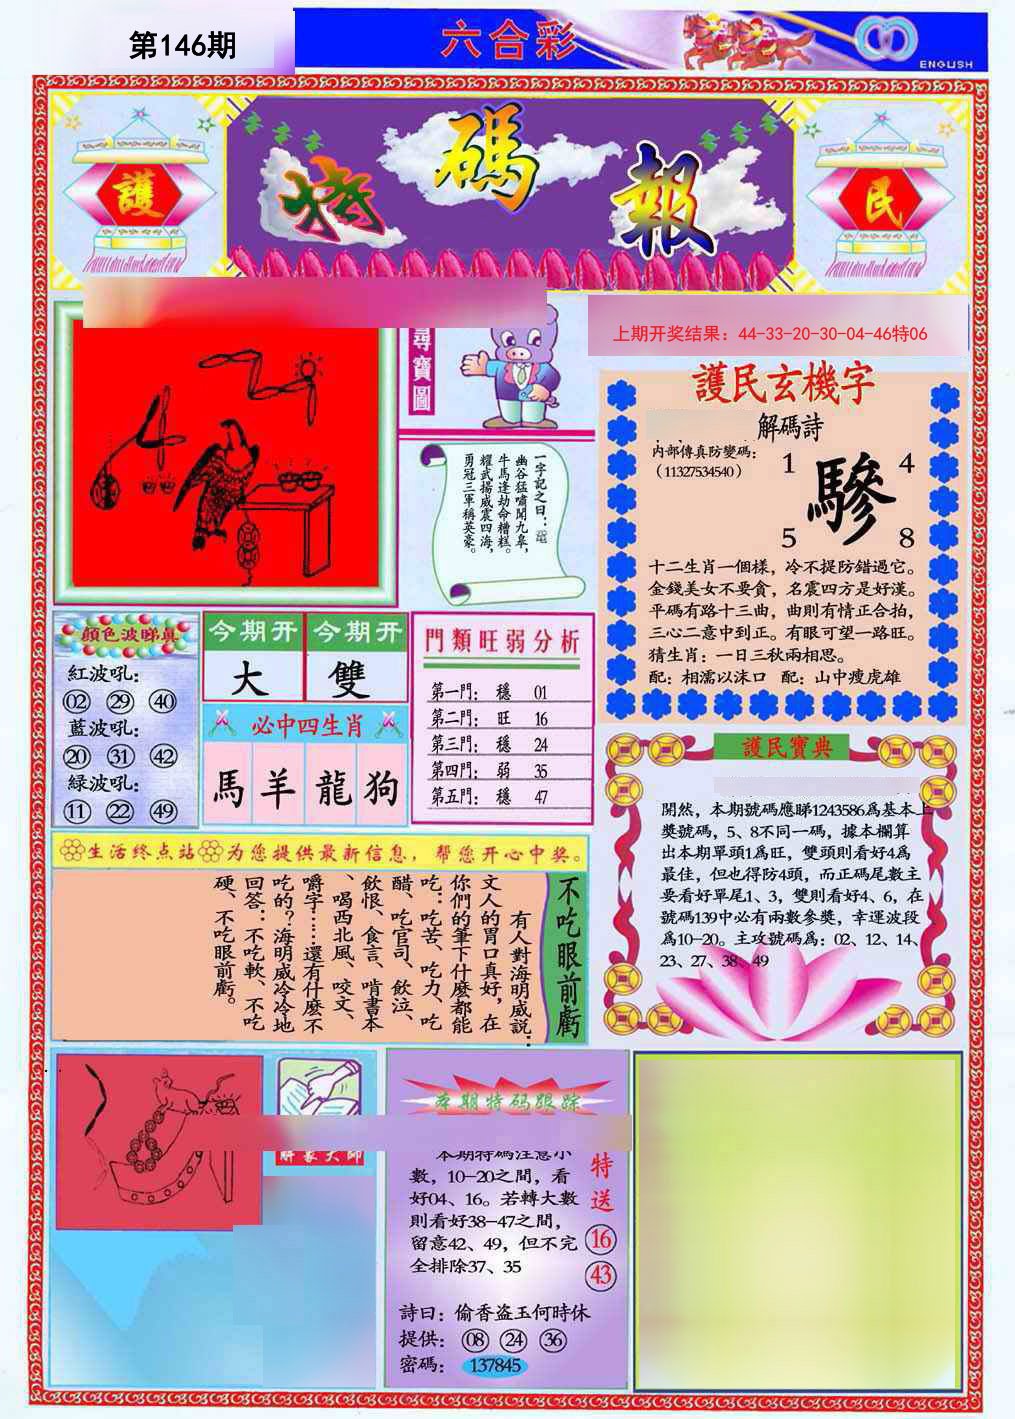 第146期
六合彩
ENGLISH
護
特碼報
民
上期开奖结果：44-33-20-30-04-46特06
尋寶圖
一字記之曰：
幽谷猛嘯聞九皋，
牛馬逢劫命糟糕。
耀武揚威震四海，
勇冠三軍稱英豪。
護民玄機字
解碼詩
內部傳真防變碼：
（11327534540）
1 4
驂
5 8
十二生肖一個樣，冷不提防錯過它。
金錢美女不要貪，名震四方是好漢。
平碼有路十三曲，曲則有情正合拍，
三心二意中到正。有眼可望一路旺。
猜生肖：一日三秋兩相思。
配：相濡以沫口 配：山中瘦虎雄
顏色波睇真
紅波吼：
02 29 40
藍波吼：
20 31 42
綠波吼：
11 22 49
今期开 今期开
大 雙
必中四生肖
馬 羊 龍 狗
門類旺弱分析
第一門： 穩 01
第二門： 旺 16
第三門： 穩 24
第四門： 弱 35
第五門： 穩 47
護民寶典
開然，本期號碼應睇1243586爲基本上
獎號碼，5、8不同一碼，據本欄算
出本期單頭1爲旺，雙頭則看好4爲
最佳，但也得防4頭，而正碼尾數主
要看好單尾1、3，雙則看好4、6，在
號碼139中必有兩數參獎，幸運波段
爲10-20。主攻號碼爲：02、12、14、
23、27、38、49
生活终点站 为您提供最新信息，帮您开心中奖。
不吃眼前虧
有人對海明威說：
文人的胃口真好，在
你們的筆下什麼都能
吃：吃苦、吃力、吃
醋、吃官司、飲泣、
飲恨、食言、啃書本
、喝西北風、咬文、
嚼字……還有什麽不
吃的？海明威冷冷地
回答：不吃軟、不吃
硬、不吃眼前虧。
解家大師
本期特码跟踪
本期特碼注意小
數，10-20之間，看
好04、16。若轉大數
則看好38-47之間，
留意42、49，但不完
全排除37、35
特送
16
43
詩曰：偷香盗玉何時休
提供： 08 24 36
密碼： 137845